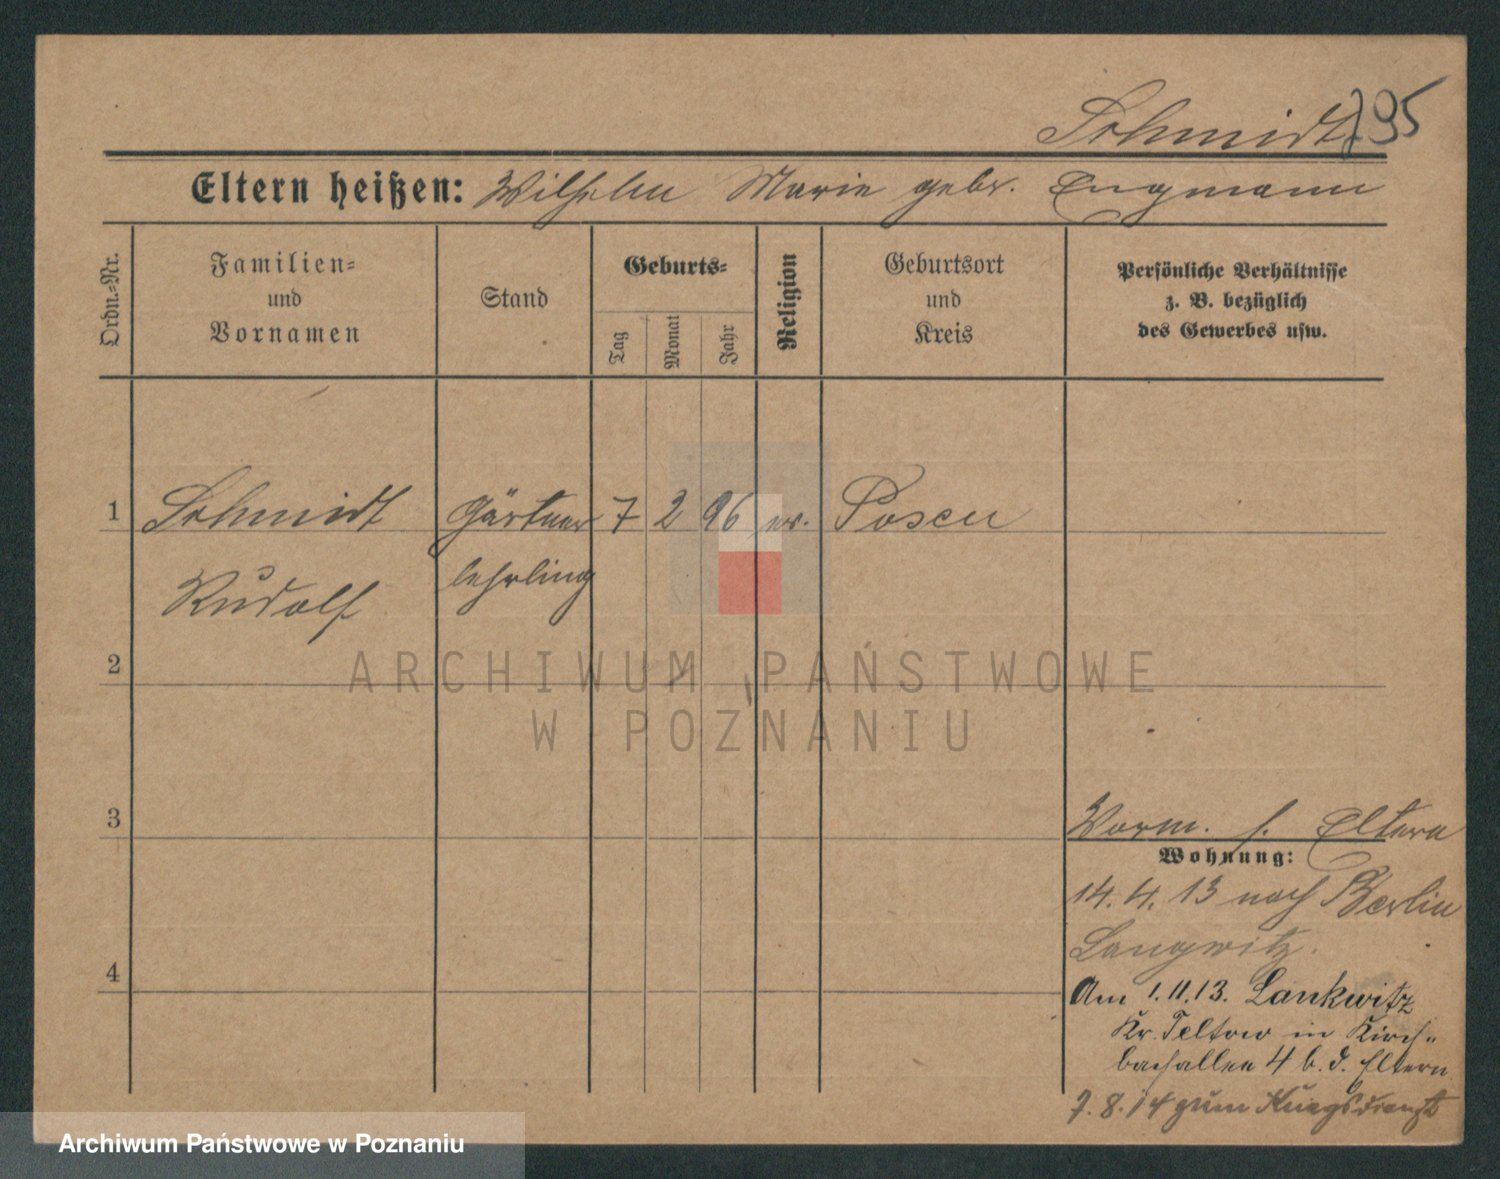 Schmidt 795
Eltern heißen: Wilhelm Marie gebr. Engmann
Ordn.=Nr.
Familien=
und
Vornamen
Stand
Geburts=
Tag
Monat
Jahr
Religion
Geburtsort
und
Kreis
Persönliche Verhältnisse
z. B. bezüglich
des Gewerbes usw.
1 Schmidt Gärtner 7 2 96 ev. Posen
Rudolf lehrling
2
3
4
Vorm. s. Eltern
Wohnung:
14. 4. 13 nach Berlin
Langwitz.
Am 1.11.13. Lankwitz
Kr. Teltow in Kirch-
bachallee 4 b. d. Eltern
7. 8. 14 zum Kriegsdienst
ARCHIWUM PAŃSTWOWE
W POZNANIU
Archiwum Państwowe w Poznaniu